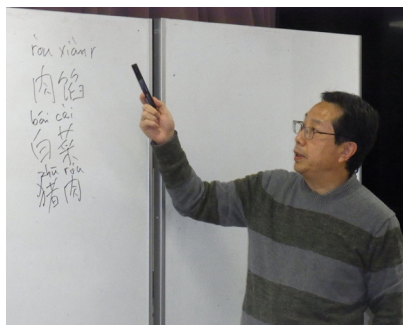 ròu xiànr
肉馅
bái cài
白菜
zhū ròu
猪肉